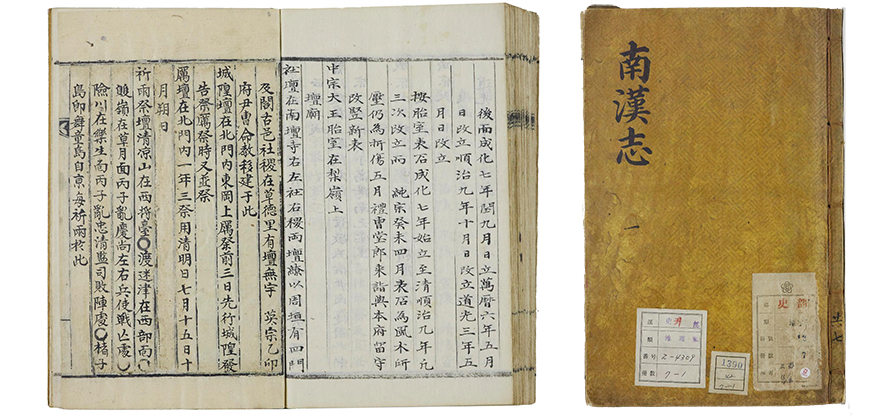 後面成化七年閏九月日立萬曆六年五月
日改立順治九年十月日改立道光三年五
月日改立
按胎室表石成化七年始立至清順治九年凡
三次改立而 純宗癸未四月表石為風木所
壓仍為折傷五月禮曹堂郎來詣與本府留守
改竪新表
中宗大王胎室在梨嶺上
壇廟
社壇在南壇寺右左社右稷兩壇繚以周垣有四門
及閣古邑社稷在草德里有壇無宇 英宗乙卯
府尹曺命教移建于此
城隍壇在北門內東岡上厲祭前三日先行城隍發
告祭厲祭時又並祭
厲壇在北門內一年三祭用清明日七月十五日十
月朔日
祈雨祭壇清凉山在西將臺〇渡迷津在西部面〇
雙嶺在草月面丙子亂慶尚左右兵使戰亾處〇
險川在樂生面丙子亂忠清監司敗陣處〇楮子
島即舞童島自京每祈雨於此
南漢志
一
共七
2-4309
7-1
7-1